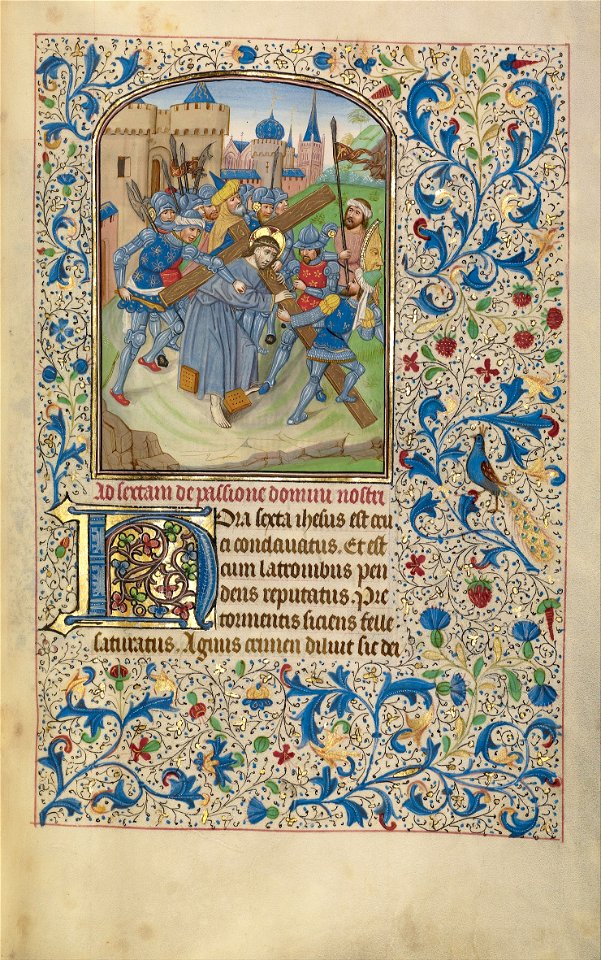 Ad sextam de passione domini nostri
Hora sexta ihesus est cru
ci conclauatus. Et est
cum latronibus pen
dens reputatus. Pre
tormentis siciens felle
saturatus. Agnus crimen diluit sic dei